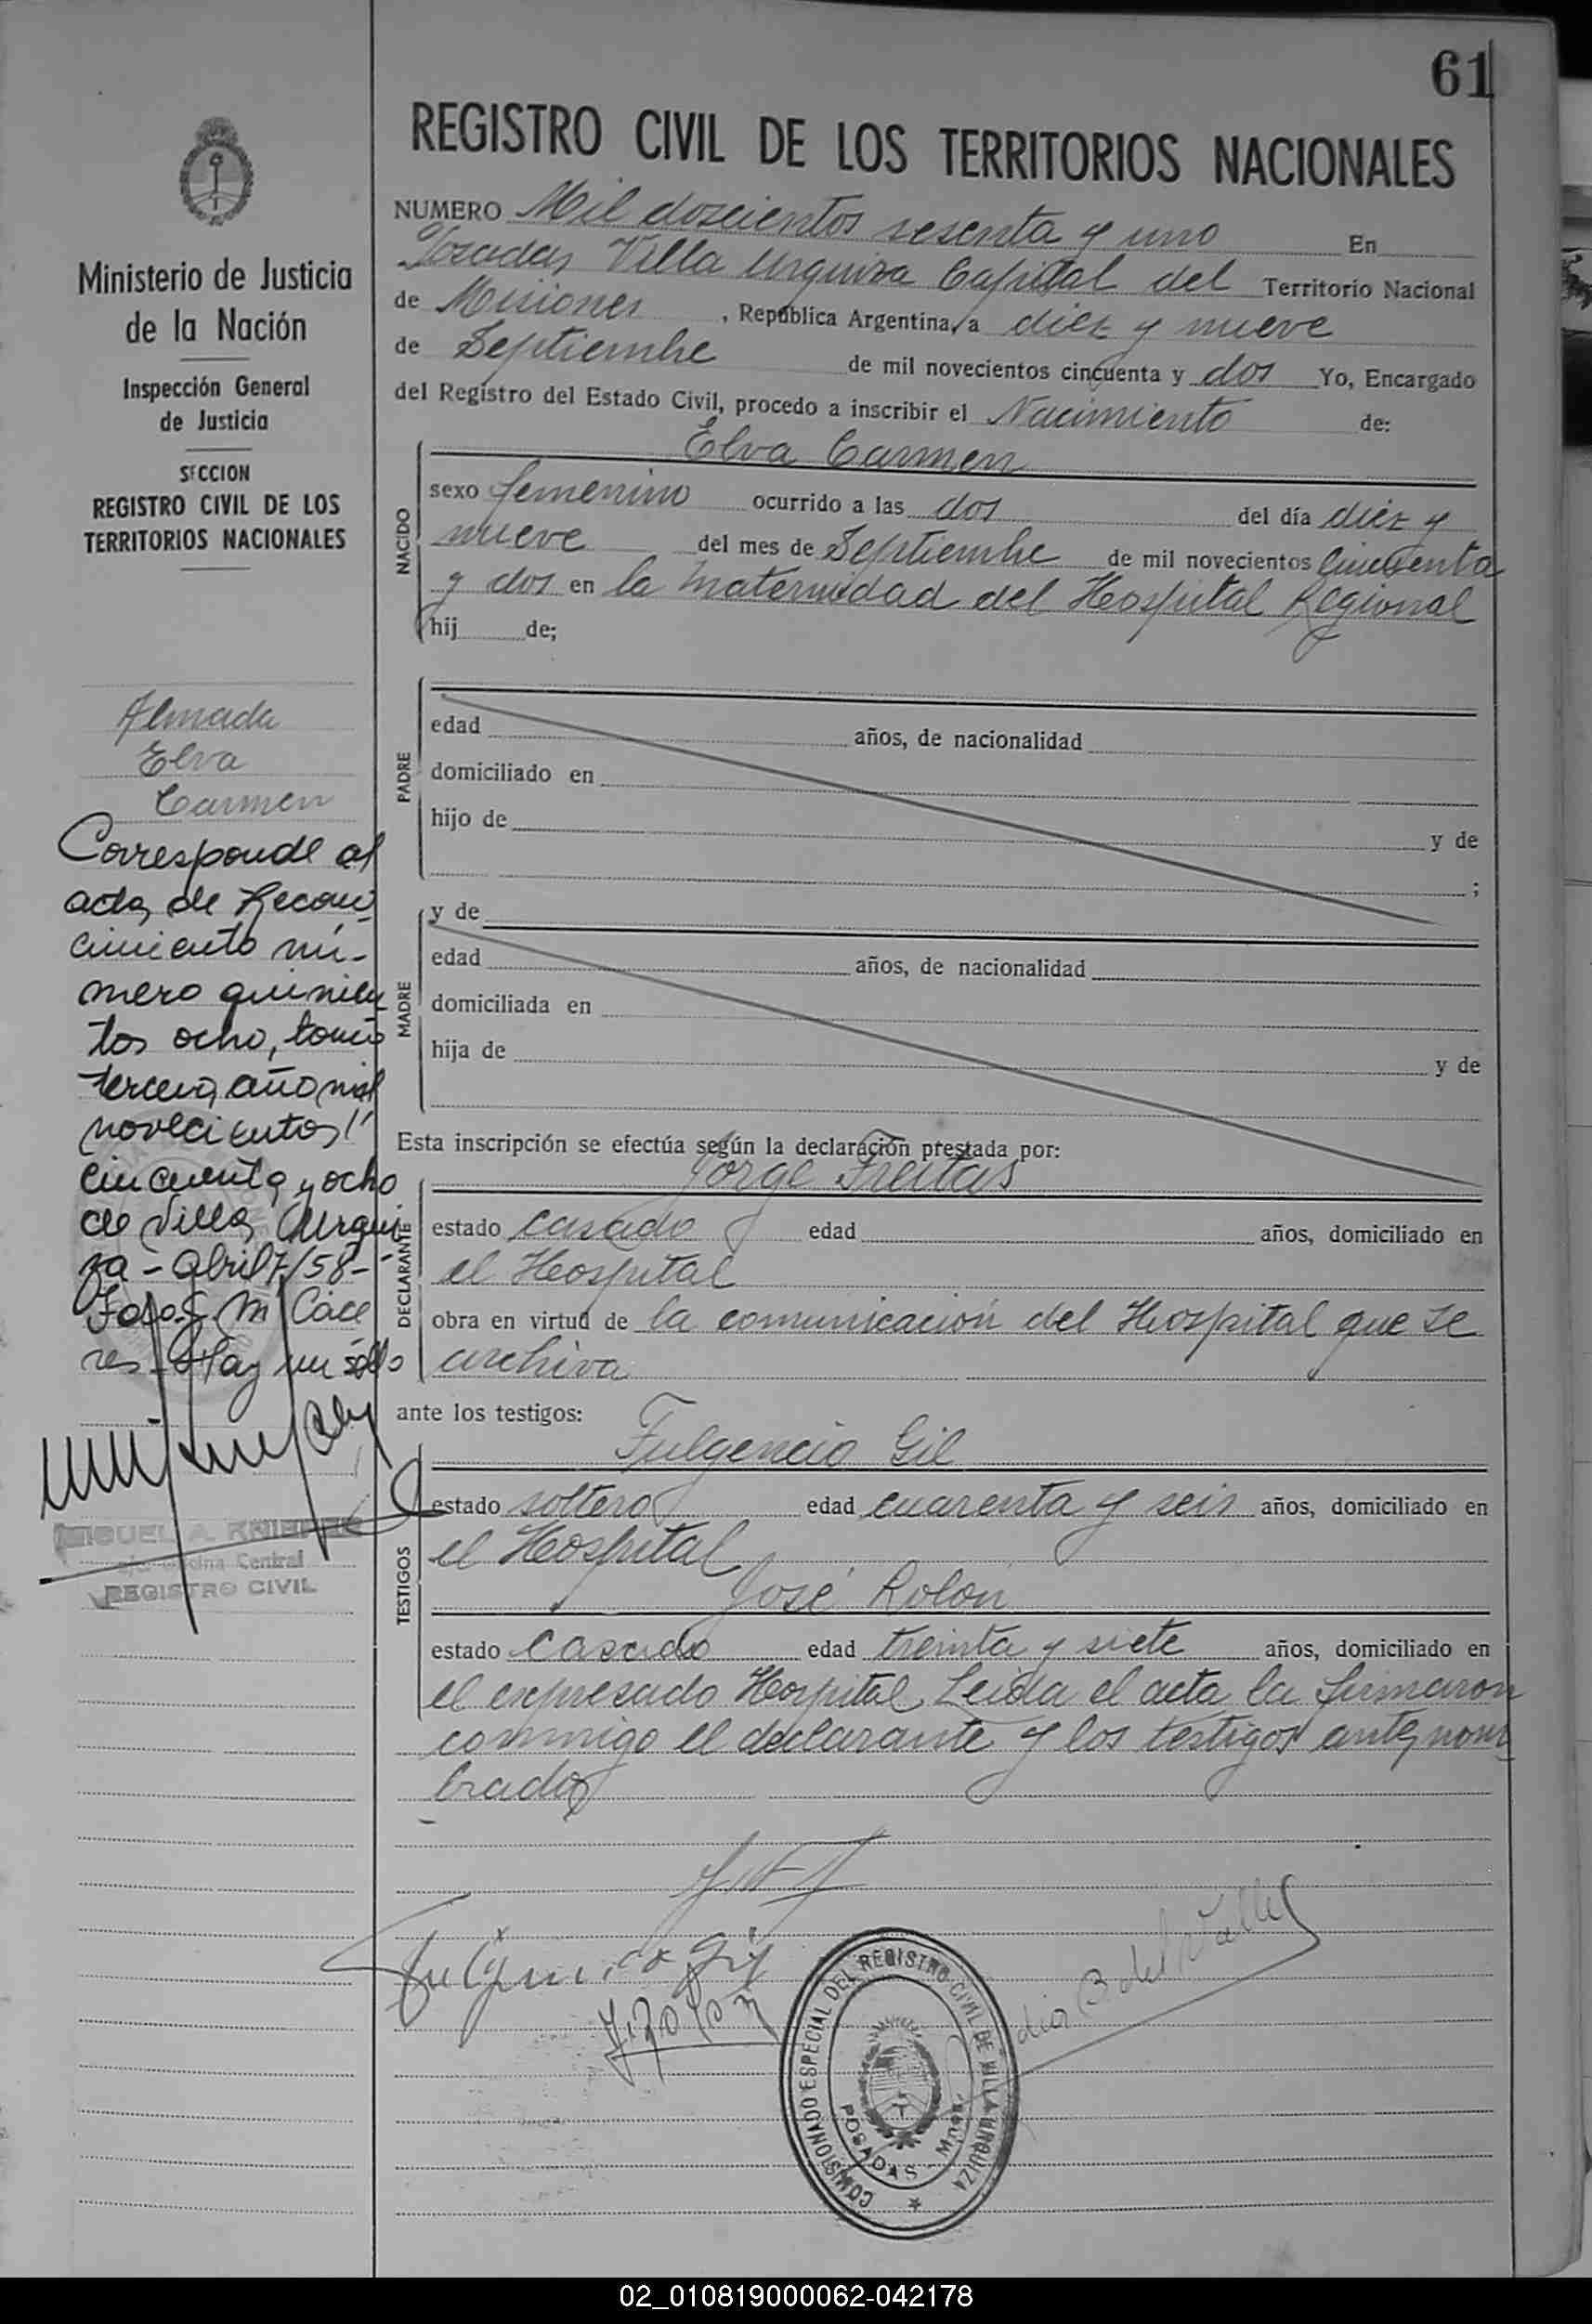 61
REGISTRO CIVIL DE LOS TERRITORIOS NACIONALES
Ministerio de Justicia
de la Nación
Inspección General
de Justicia
SECCION
REGISTRO CIVIL DE LOS
TERRITORIOS NACIONALES
Almada
Elva
Carmen
Corresponde al
acta de Recono
cimiento nú-
mero quinien
tos ocho, tomo
tercero, año mil
novecientos
cincuenta y ocho
de Villa Urqui
za - Abril 7/58-
Fdo. S. M. Cace
res - Hay un sello
MIGUEL A.
Oficina Central
REGISTRO CIVIL
NUMERO Mil doscientos sesenta y uno En
Posadas Villa Urquiza Capital del Territorio Nacional
de Misiones, República Argentina, a diez y nueve
de Septiembre de mil novecientos cincuenta y dos Yo, Encargado
del Registro del Estado Civil, procedo a inscribir el Nacimiento de:
NACIDO
Elva Carmen
sexo femenino ocurrido a las dos del día diez y
nueve del mes de Septiembre de mil novecientos cincuenta
y dos en la Maternidad del Hospital Regional
hij de;
PADRE
edad años, de nacionalidad
domiciliado en
hijo de y de
;
MADRE
y de
edad años, de nacionalidad
domiciliada en
hija de y de
Esta inscripción se efectúa según la declaración prestada por:
DECLARANTE
Jorge Freitas
estado casado edad años, domiciliado en
el Hospital
obra en virtud de la comunicación del Hospital que se
archiva
ante los testigos:
TESTIGOS
Fulgencio Gil
estado soltero edad cuarenta y seis años, domiciliado en
el Hospital
José Rolon
estado casado edad treinta y siete años, domiciliado en
el expresado Hospital, Leida el acta la firmaron
conmigo el declarante y los testigos ante nom
brados
Fulgencio Gil
J. Rolon
B del Valle
COMISIONADO ESPECIAL DEL REGISTRO CIVIL DE VILLA URQUIZA
POSADAS - Mnes.
02_010819000062-042178